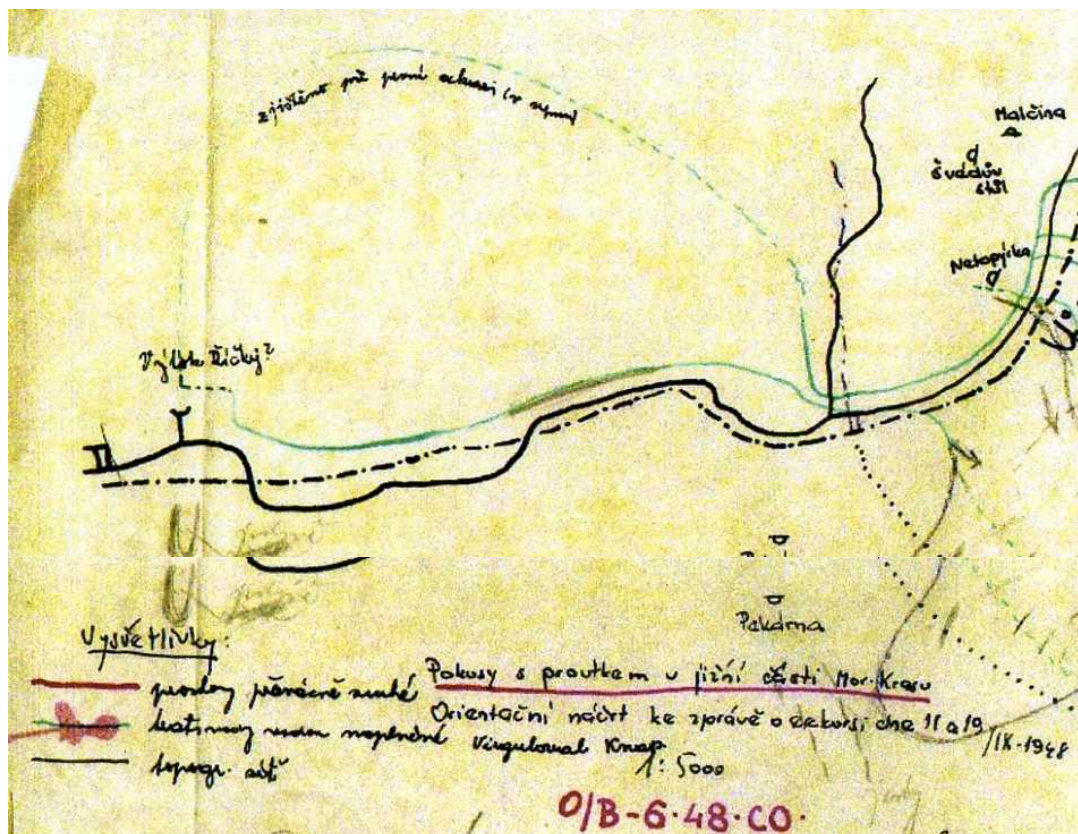 zjištěno při první exkursi (v srpnu)
Malčina
Švédův
stůl
Netopýrka
Výtok Říčky?
Pekárna
Vysvětlivky:
prostory převážně suché
vodou naplněné
topogr. síť
Pokusy s proutkem v jižní části Mor. Krasu
Orientační náčrt ke zprávě o exkursi dne 11 a 19/IX-1948
Virguloval Knap
1: 5000
O/B-6·48·CO·